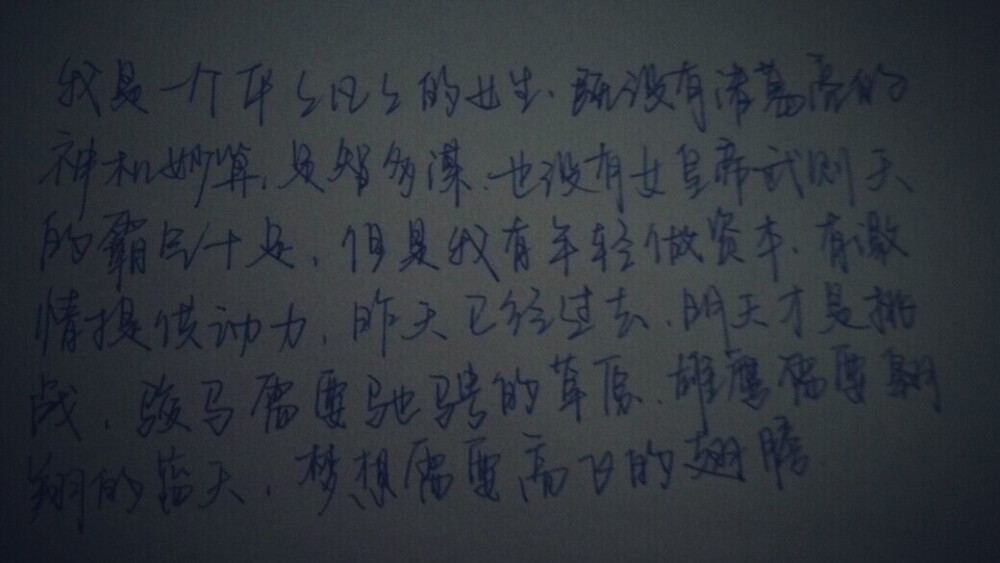 我是一个平平凡凡的女生、既没有诸葛亮的
神机妙算,足智多谋、也没有女皇帝武则天
的霸气十足,但是我有年轻做资本、有激
情提供动力,昨天已经过去、明天才是挑
战,骏马需要驰骋的草原、雄鹰需要翱
翔的蓝天,梦想需要高飞的翅膀